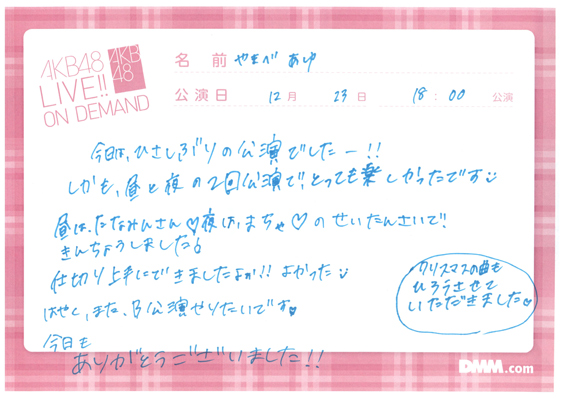 AKB48
LIVE!!
ON DEMAND
AKB
48
名 前 やまべ あゆ
公演日 12月 23日 18:00 公演
今日は、ひさしぶりの公演でしたー!!
しかも、昼と夜の2回公演で、とっても楽しかったです
昼は、たなみんさん♡夜は、まちゃ♡のせいたんさいで!
きんちょうしました!
仕切り上手にできましたよね!! よかった
はやく、また、B公演やりたいです♥
今日も
ありがとうございました!!
クリスマスの曲も
ひろうさせて
いただきました♡
DMM.com